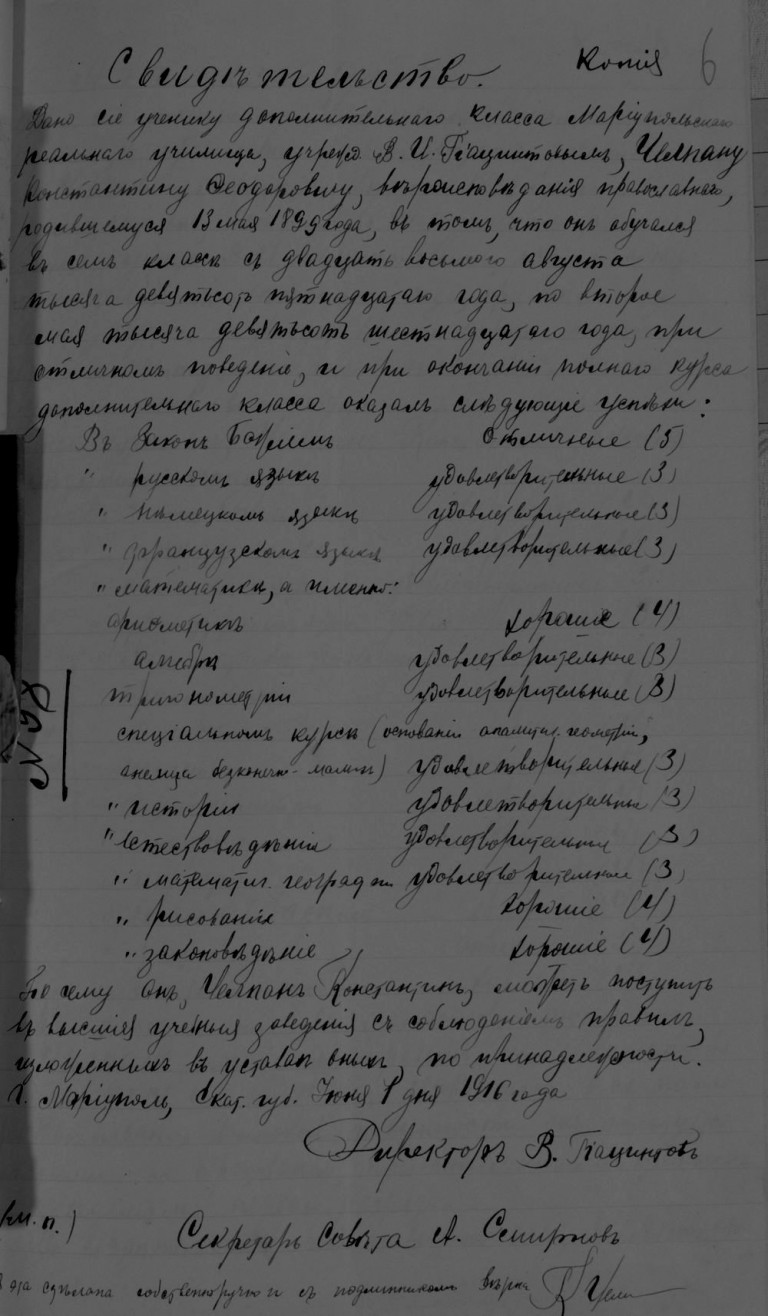 Копія
6
Свидѣтельство.
Дано сіе ученику дополнительнаго класса Маріупольскаго
реальнаго училища, учрежд. В. И. Гіацинтовымъ, Челпану
Константину Ѳеодоровичу, вѣроисповѣданія православнаго,
родившемуся 13 мая 1899 года, въ томъ, что онъ обучался
въ семъ классѣ съ двадцать восьмого августа
тысяча девятьсотъ пятнадцатаго года, по второе
мая тысяча девятьсотъ шестнадцатаго года, при
отличномъ поведеніи, и при окончаніи полнаго курса
дополнительнаго класса оказалъ слѣдующіе успѣхи:
Въ Законѣ Божіемъ отличные (5)
" русскомъ языкѣ удовлетворительные (3)
" нѣмецкомъ языкѣ удовлетворительные (3)
" французскомъ языкѣ удовлетворительные (3)
" математикѣ, а именно:
ариѳметикѣ хорошіе (4)
алгебрѣ удовлетворительные (3)
тригонометріи удовлетворительные (3)
спеціальномъ курсѣ (основанія аналитич. геометріи,
анализа безконечно-малыхъ) удовлетворительные (3)
N 98
" исторіи удовлетворительные (3)
" естествовѣдѣніи удовлетворительные (3)
" математич. географіи удовлетворительные (3)
" рисованіи хорошіе (4)
" законовѣдѣніе хорошіе (4)
По чему онъ, Челпанъ Константинъ, можетъ поступить
въ высшія учебныя заведенія съ соблюденіемъ правилъ,
изложенныхъ въ уставахъ оныхъ, по принадлежности.
г. Маріуполь, Екат. губ. Іюня 1 дня 1916 года
Директоръ В. Гіацинтовъ
(м. п.)
Секретарь Совѣта А. Смирновъ
эта сдѣлана собственноручно и съ подлинникомъ вѣрна